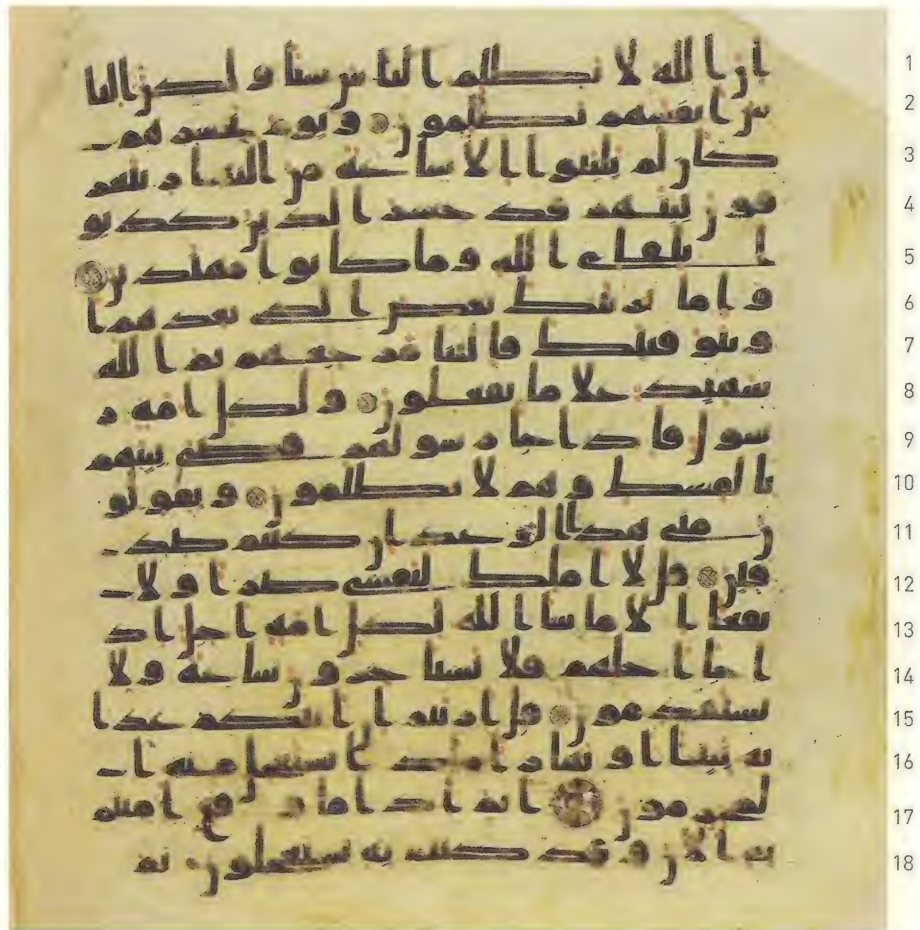 ان الله لا يظلم الناس شيا ولكن النا 1
س انفسهم يظلمون ويوم يحشرهم 2
كان لم يلبثوا الا ساعة من النهار يتعر 3
فون بينهم قد خسر الذين كذبو 4
ا بلقا الله وما كانوا مهتدين 5
واما نرينك بعض الذي نعدهم ا 6
و نتوفينك فالينا مرجعهم ثم الله 7
شهيد على ما يفعلون ولكل امة ر 8
سول فاذا جا رسولهم قضي بينهم 9
بالقسط وهم لا يظلمون ويقولو 10
ن متى هذا الوعد ان كنتم صد 11
قين قل لا املك لنفسي ضرا ولا 12
نفعا الا ما شا الله لكل امة اجل اذ 13
ا جا اجلهم فلا يستاخرون ساعة ولا 14
يستقدمون قل اريتم ان اتيكم عذا 15
به بيتا او نهارا ماذا يستعجل منه ا 16
لمجرمون اثم اذا ما وقع امنتم 17
به الن وقد كنتم به تستعجلون ثم 18